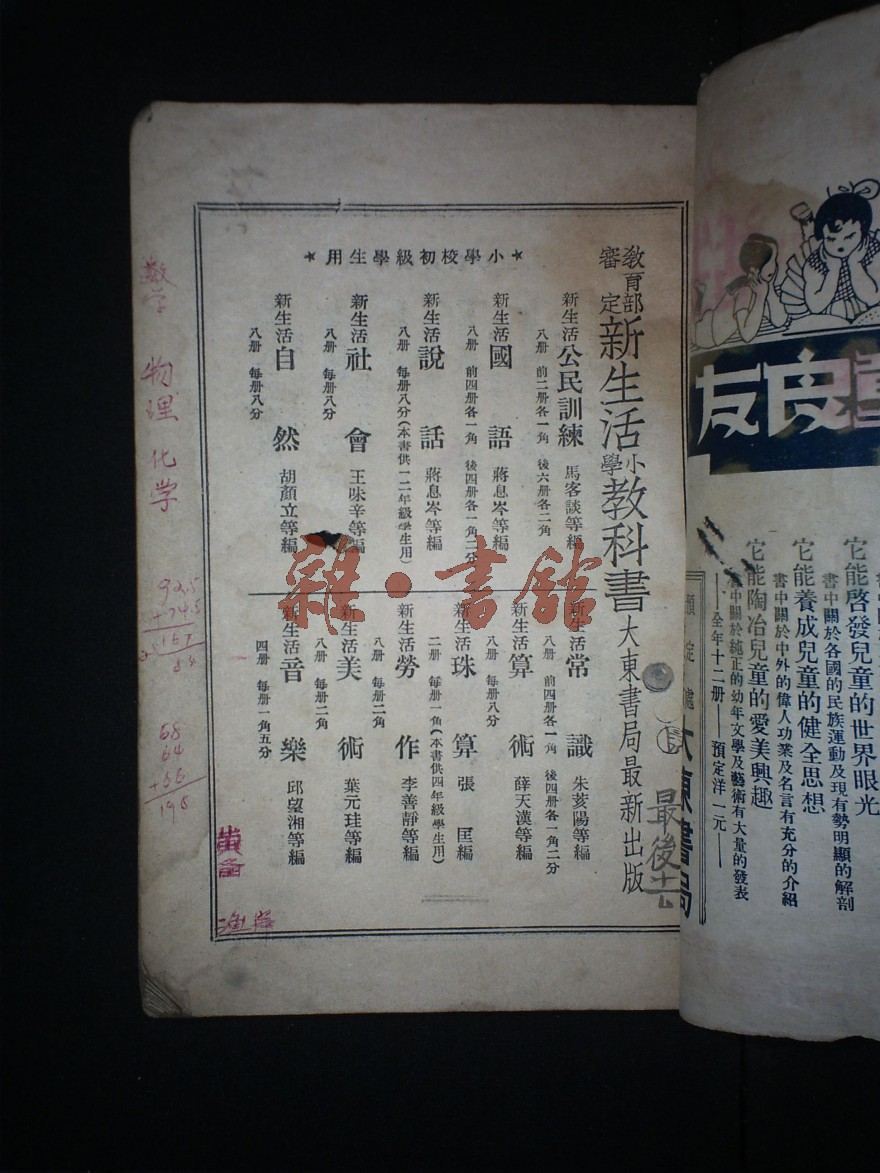 教育部審定新生活小學教科書大東書局最新出版
★小學校初級學生用★
新生活公民訓練 馬客談等編
八册 前二册各一角 後六册各二角
新生活國語 蔣息岑等編
八册 前四册各一角 後四册各一角二分
新生活說話 蔣息岑等編
八册 每册八分(本書供一二年級學生用)
新生活社會 王味辛等編
八册 每册八分
新生活自然 胡顏立等編
八册 每册八分
新生活常識 朱荄陽等編
八册 前四册各一角 後四册各一角二分
新生活算術 薛天漢等編
八册 每册八分
新生活珠算 張匡編
二册 每册一角(本書供四年級學生用)
新生活勞作 李善靜等編
八册 每册二角
新生活美術 葉元珪等編
八册 每册二角
新生活音樂 邱望湘等編
四册 每册一角五分
最後
数学 物理 化学
92.5
+74.5
167
68
64
+66
198
雜·書館
良友
它能啓發兒童的世界眼光
書中關於各國的民族運動及現有勢明顯的解剖
它能養成兒童的健全思想
書中關於中外的偉人功業及名言有充分的介紹
它能陶冶兒童的愛美興趣
書中關於純正的幼年文學及藝術有大量的發表
——全年十二册——預定洋一元——
預定處 大東書局